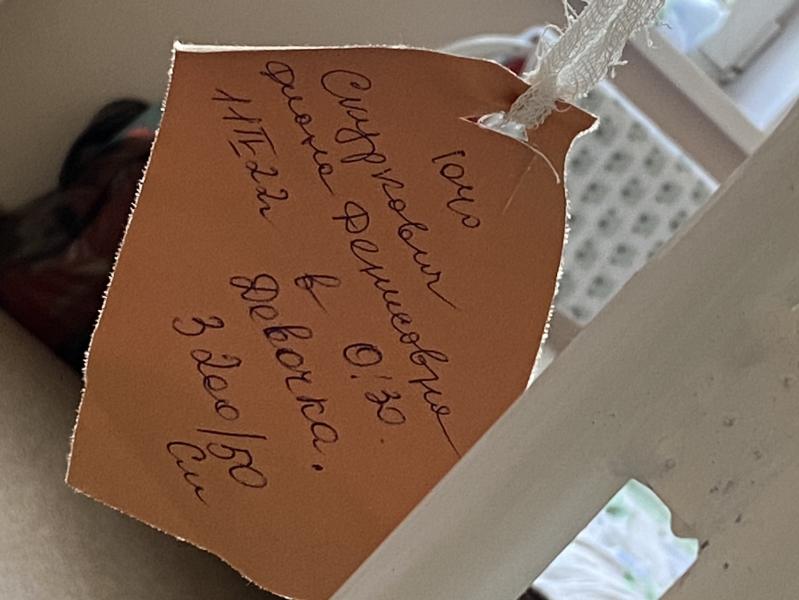 Скуркович
Диана Денисовна
11 III 22г в 0:30.
Девочка.
3200/50
см